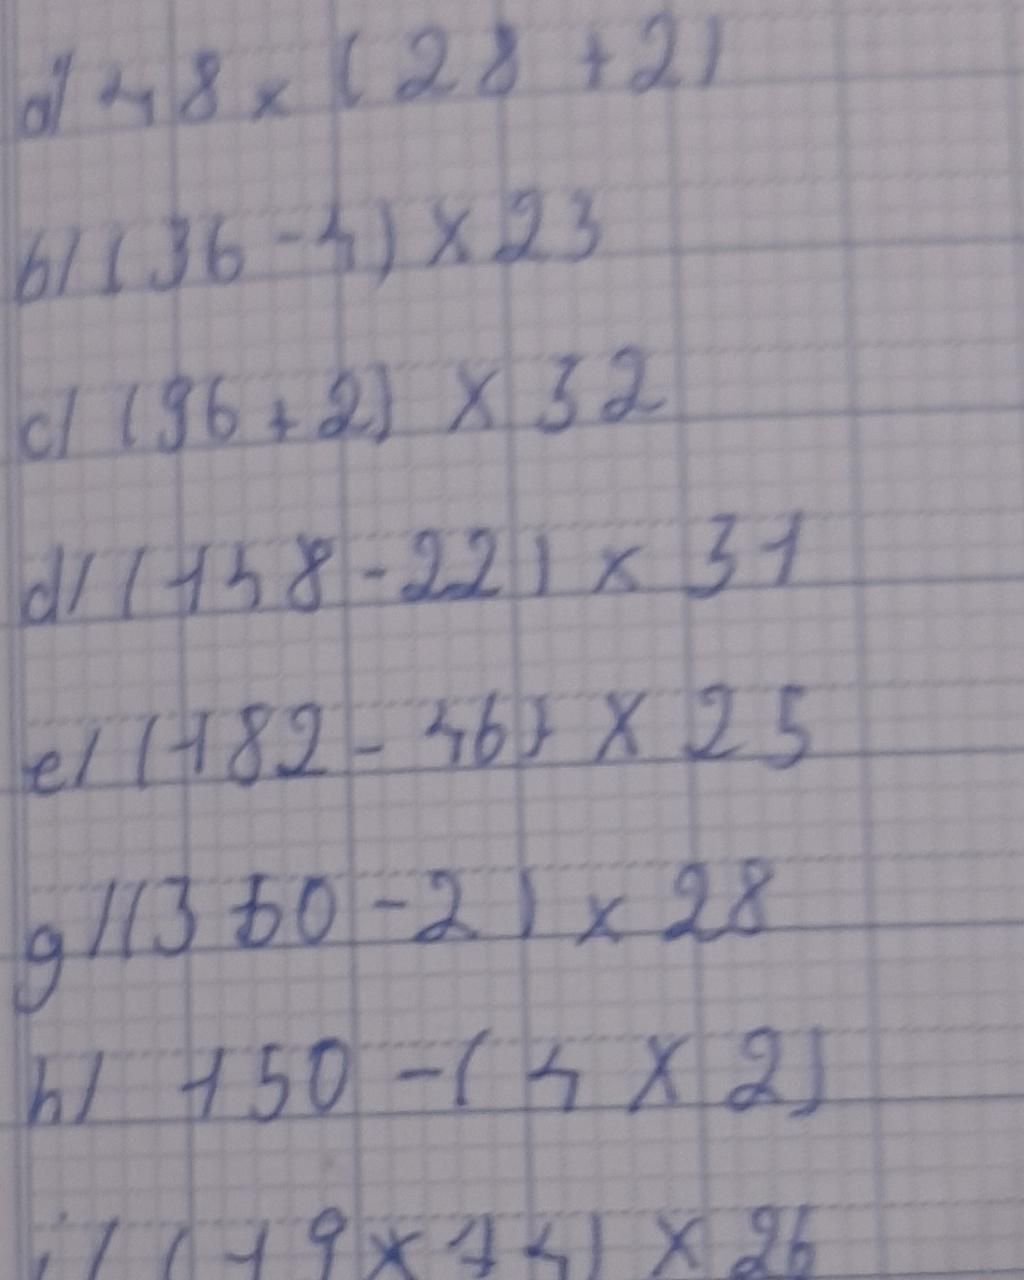 a) 48 x (28 + 2)
b) (36 - 4) x 23
c) (96 + 2) x 32
d) (158 - 22) x 31
e) (182 - 46) x 25
g) (350 - 2) x 28
h) 150 - (4 x 2)
i) (19 x 14) x 26